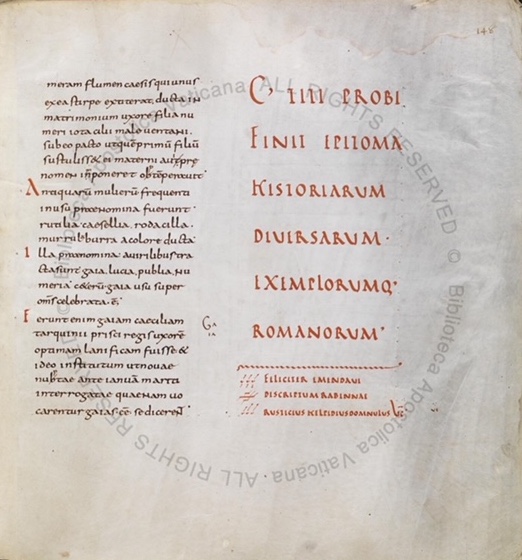 148
meram flumen caesis qui unus
ex ea stirpe extiterat, ducta in
matrimonium uxore filia nu
meri otacilii maleventani.
sub eo pacto ut que primū filiū
sustuliss& ei materni avi prę
nomen inponeret obtemperavit
Antiquarū mulierū frequenti
in usu praenomina fuerunt
rutilia caesellia rodacilla
murrula burra a colore ducta.
Illa praenomina a viribus tra
cta sunt gaia, lucia, publia, nu
meria ceterū gaia usu super
om̅s celebrata. ē.
Ferunt enim gaiam caeciliam
Ga
ia
tarquinii prisci regis uxorē
optimam lanificam fuisse &
ideo institutum ut novae
nuptae ante ianuā mariti
interrogatae quaenam vo
carentur gaias eē se dicerent
C, TITI PROBI
FINIT EPITOMA
HISTORIARUM
DIVERSARUM
EXEMPLORUMQ·
ROMANORUM·
FELICITER EMENDAVI
DISCRIPTUM RABENNAE
RUSTICIUS HELPIDIUS DOMNULUS VC
© Biblioteca Apostolica Vaticana. ALL RIGHTS RESERVED
© Biblioteca Apostolica Vaticana. ALL RIGHTS RESERVED